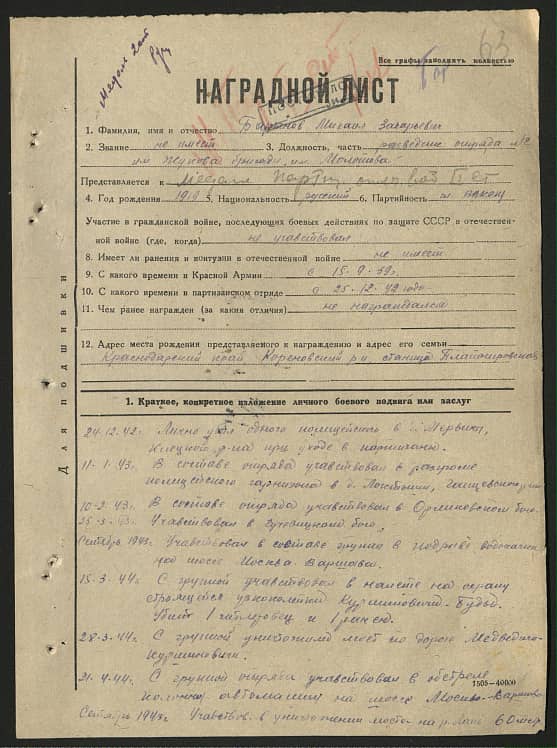 Медаль 2 ст
63
Все графы заполнять полностью
НАГРАДНОЙ ЛИСТ
1. Фамилия, имя и отчество Михаил Захарьевич
2. Звание не имеет 3. Должность, часть разведчик отряда №2
им Жукова бригады им. Молотова
Представляется к Медали Парти II ст
4. Год рождения 1919 5. Национальность русский 6. Партийность
Участие в гражданской войне, последующих боевых действиях по защите СССР в отечествен-
ной войне (где, когда) не участвовал
8. Имеет ли ранения и контузии в отечественной войне не имеет
9. С какого времени в Красной Армии с 15.9.39г.
10. С какого времени в партизанском отряде с 25.12.42 года
11. Чем ранее награжден (за какие отличия) не награждался
12. Адрес места рождения представляемого к награждению и адрес его семьи
Краснодарский край, Кореновский р-н станица
Для подшивки
1. Краткое, конкретное изложение личного боевого подвига или заслуг
24.12.42г. Лично убил одного полицейского в д.
Клецкой р-на при уходе в партизаны.
11.1.43г. В составе отряда участвовал в разгроме
полицейского гарнизона в д.
10.2.43г. В составе отряда участвовал в бою.
25.5.43г. Участвовал в бою.
Сентябрь 1943г. Участвовал в составе группы в подрыве
над шоссе Москва Варшава.
15.3.44г. С группой участвовал в налете на охрану
строящейся узкоколейки Буды.
Убит 1 и 1 ранен.
28.3.44г. С группой уничтожили мост по дороге
21.4.44г. С группой отряда участвовал в обстреле
колонны автомашин на шоссе Москва-Варшава
1505—40000
Сентябрь 1943г. Участвов. в уничтожении моста на р. Лань 60 метр.